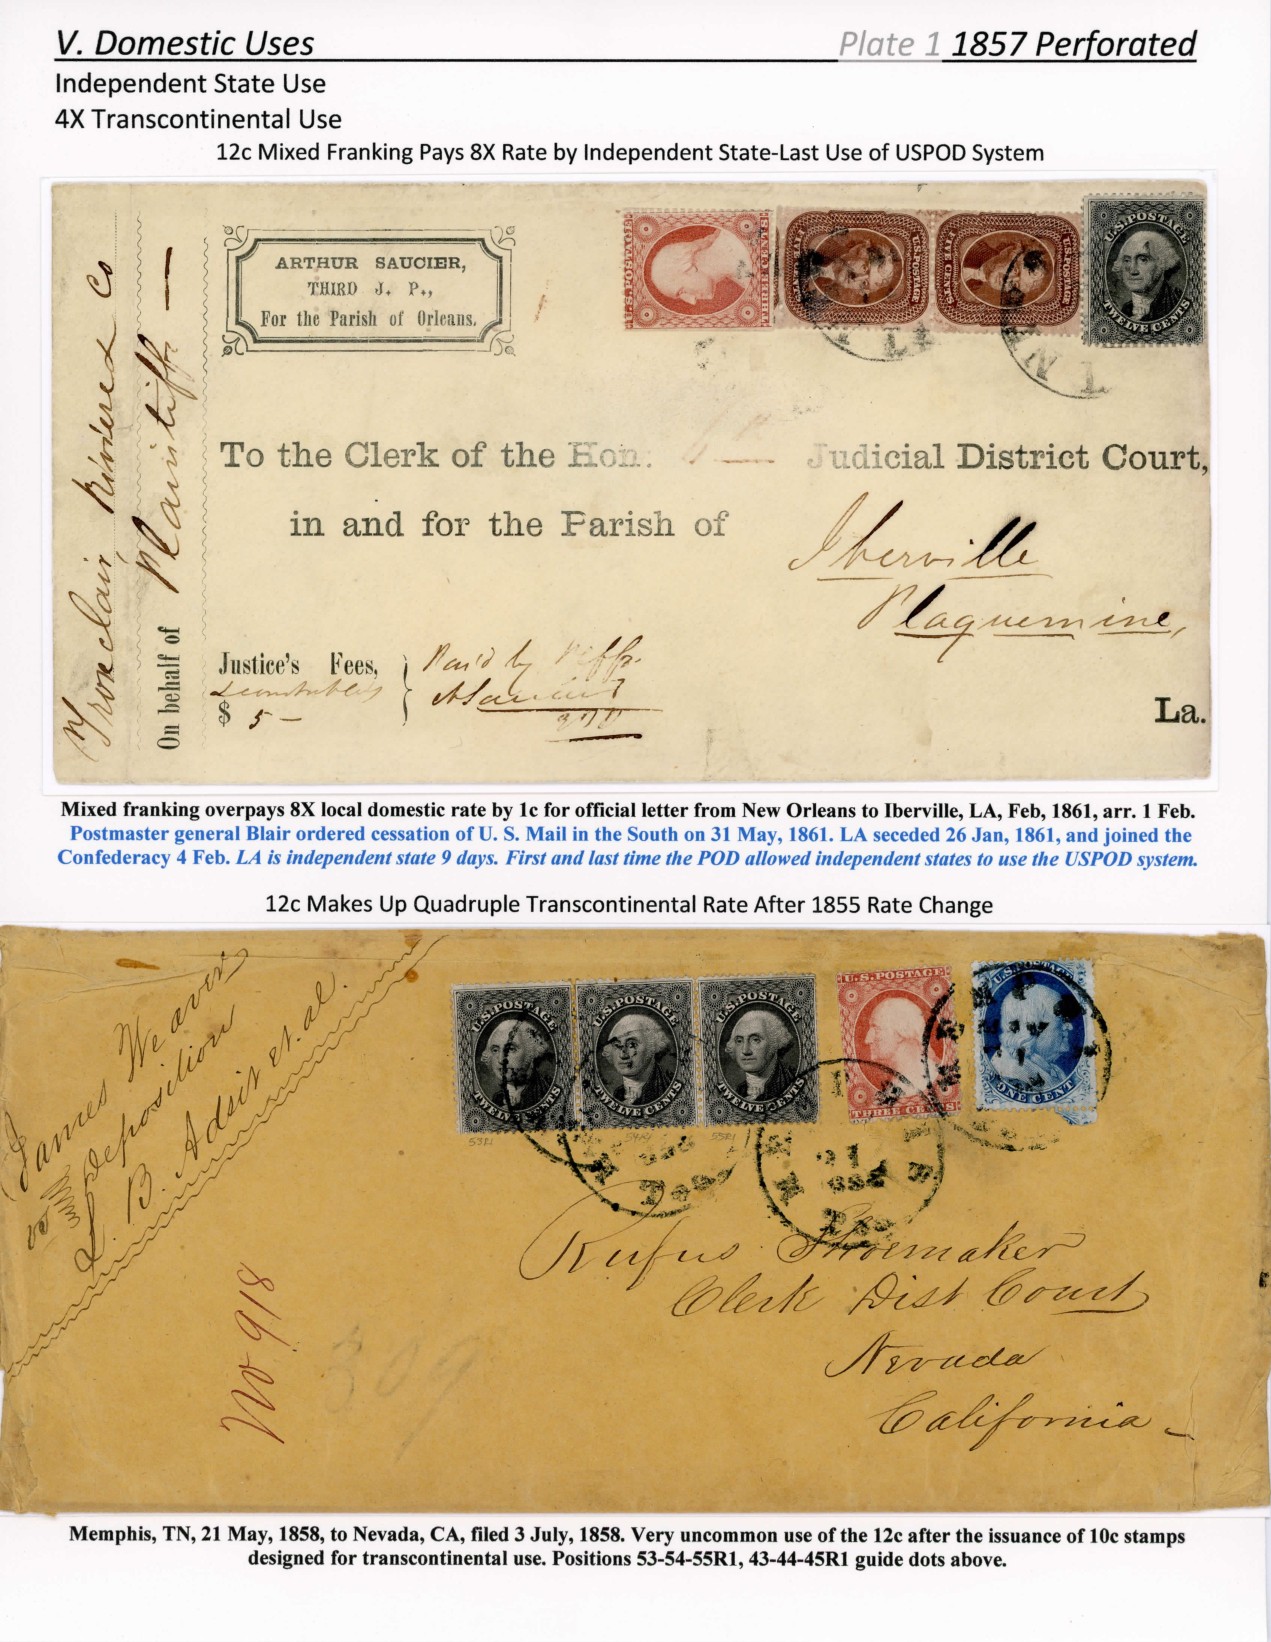 V. Domestic Uses Plate 1 1857 Perforated
Independent State Use
4X Transcontinental Use
12c Mixed Franking Pays 8X Rate by Independent State-Last Use of USPOD System
U.S. POSTAGE
U.S. POSTAGE
U.S. POSTAGE
U.S. POSTAGE
TWELVE CENTS
ARTHUR SAUCIER,
THIRD J. P.,
For the Parish of Orleans.
On behalf of Plaintiff
To the Clerk of the Hon. Judicial District Court,
in and for the Parish of
Iberville
Plaquemine,
Justice's Fees,
$ 5 –
Paid by
La.
Mixed franking overpays 8X local domestic rate by 1c for official letter from New Orleans to Iberville, LA, Feb, 1861, arr. 1 Feb.
Postmaster general Blair ordered cessation of U. S. Mail in the South on 31 May, 1861. LA seceded 26 Jan, 1861, and joined the
Confederacy 4 Feb. LA is independent state 9 days. First and last time the POD allowed independent states to use the USPOD system.
12c Makes Up Quadruple Transcontinental Rate After 1855 Rate Change
James Weaver
Deposition
L. B. Adsit et. al.
No 918
309
U.S. POSTAGE
TWELVE CENTS
U.S. POSTAGE
TWELVE CENTS
U.S. POSTAGE
TWELVE CENTS
U.S. POSTAGE
THREE CENTS
U.S. POSTAGE
ONE CENT
53R1 54R1 55R1
21
Rufus Shoemaker
Clerk Dist Court
Nevada
California
Memphis, TN, 21 May, 1858, to Nevada, CA, filed 3 July, 1858. Very uncommon use of the 12c after the issuance of 10c stamps
designed for transcontinental use. Positions 53-54-55R1, 43-44-45R1 guide dots above.